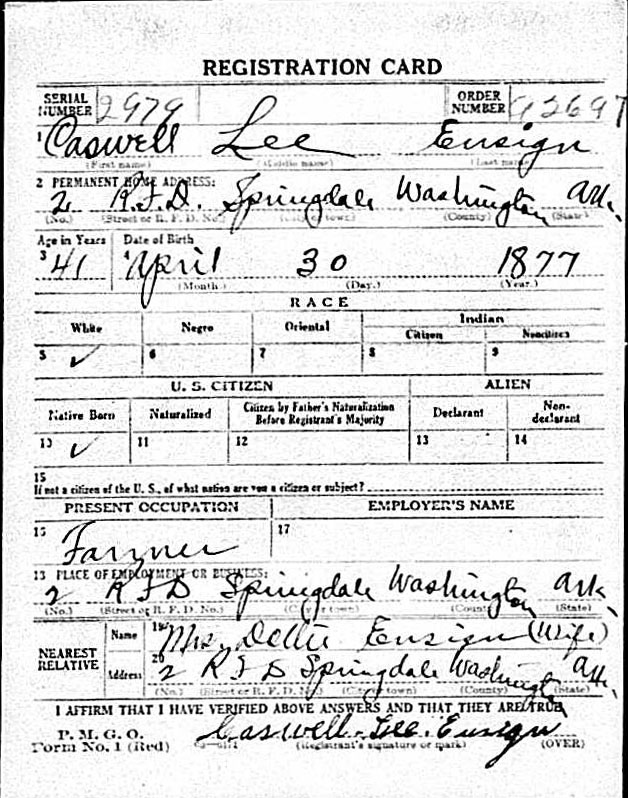 REGISTRATION CARD
SERIAL NUMBER 2979 ORDER NUMBER A2697
1 Caswell Lee Ensign
(First name) (Middle name) (Last name)
2 PERMANENT HOME ADDRESS:
2 R.F.D. Springdale Washington Ark.
(No.) (Street or R. F. D. No.) (City or town) (County) (State)
Age in Years Date of Birth
3 41 4 April 30 1877
(Month.) (Day.) (Year.)
RACE
White Negro Oriental Indian
Citizen Noncitizen
5 ✓ 6 7 8 9
U. S. CITIZEN ALIEN
Native Born Naturalized Citizen by Father's Naturalization Before Registrant's Majority Declarant Non-declarant
10 ✓ 11 12 13 14
15
If not a citizen of the U. S., of what nation are you a citizen or subject?
PRESENT OCCUPATION EMPLOYER'S NAME
16 Farmer 17
18 PLACE OF EMPLOYMENT OR BUSINESS:
2 R F D Springdale Washington Ark
(No.) (Street or R. F. D. No.) (City or town) (County) (State)
NEAREST RELATIVE
Name 19 Mrs. Dellie Ensign (Wife)
Address 20 2 R F D Springdale Washington Ark.
(No.) (Street or R. F. D. No.) (City or town) (County) (State)
I AFFIRM THAT I HAVE VERIFIED ABOVE ANSWERS AND THAT THEY ARE TRUE
P. M. G. O.
Form No. 1 (Red) Caswell Lee Ensign
(Registrant's signature or mark) (OVER)